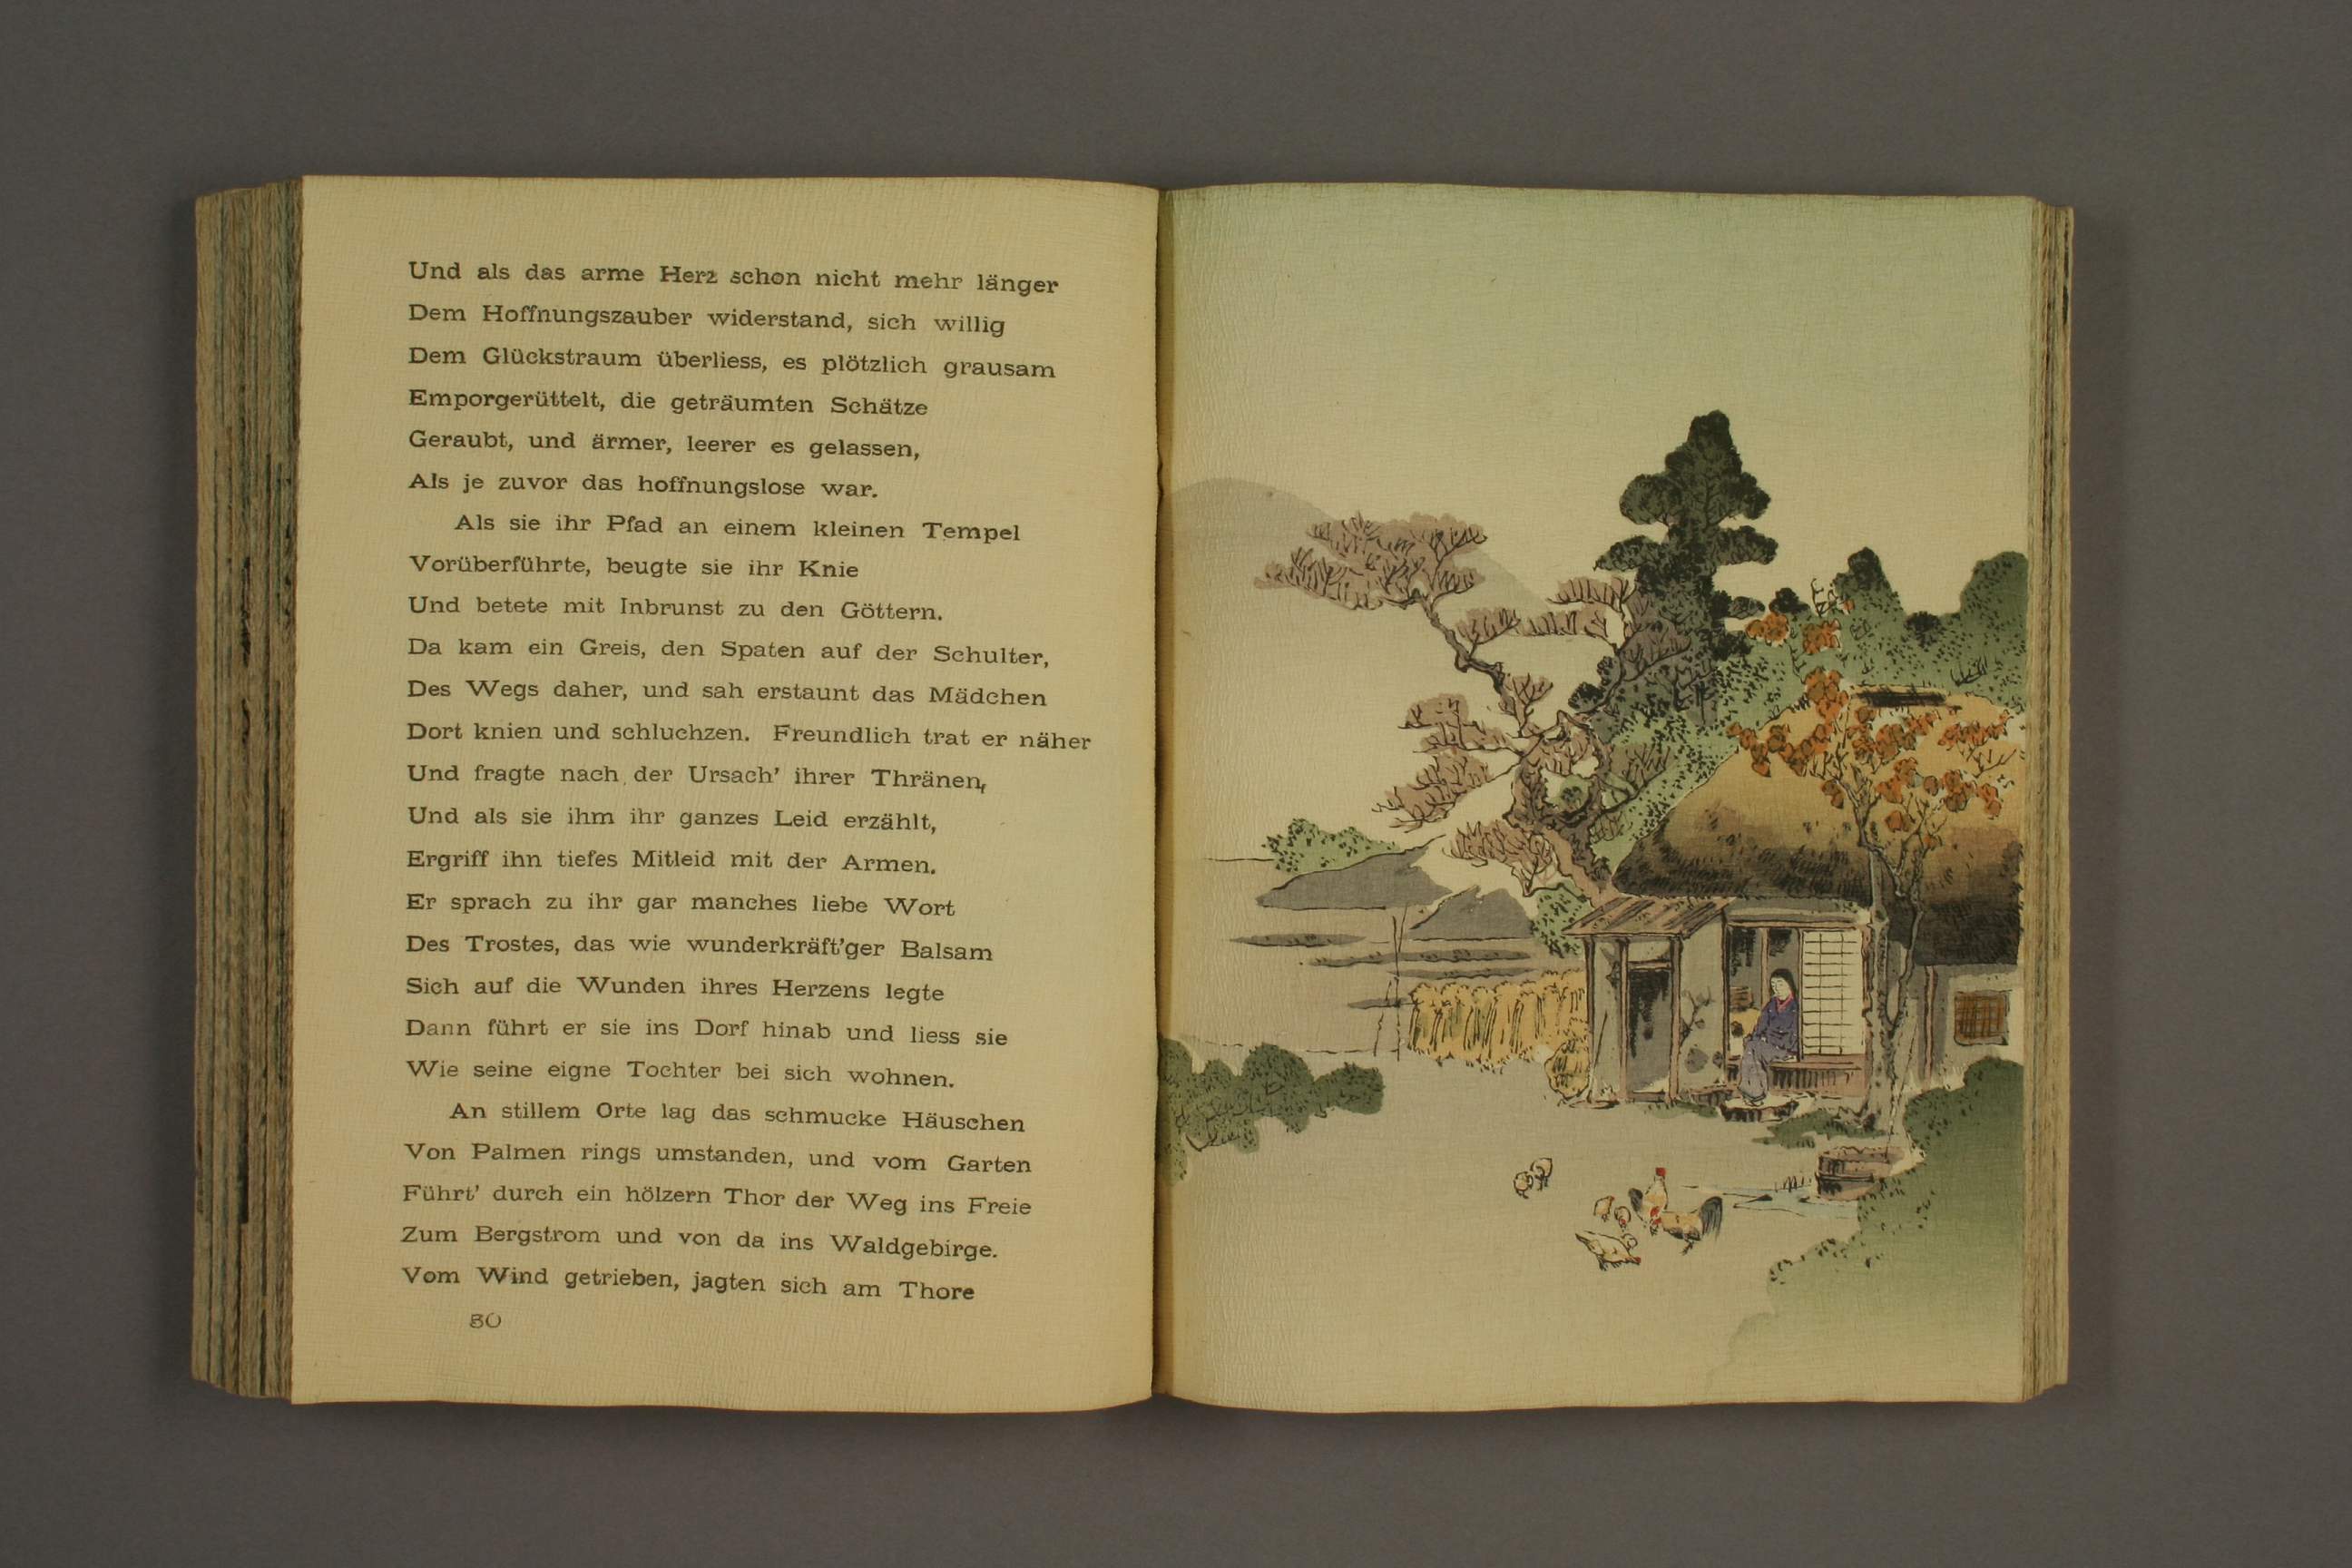 Und als das arme Herz schon nicht mehr länger
Dem Hoffnungszauber widerstand, sich willig
Dem Glückstraum überliess, es plötzlich grausam
Emporgerüttelt, die geträumten Schätze
Geraubt, und ärmer, leerer es gelassen,
Als je zuvor das hoffnungslose war.
Als sie ihr Pfad an einem kleinen Tempel
Vorüberführte, beugte sie ihr Knie
Und betete mit Inbrunst zu den Göttern.
Da kam ein Greis, den Spaten auf der Schulter,
Des Wegs daher, und sah erstaunt das Mädchen
Dort knien und schluchzen. Freundlich trat er näher
Und fragte nach der Ursach' ihrer Thränen,
Und als sie ihm ihr ganzes Leid erzählt,
Ergriff ihn tiefes Mitleid mit der Armen.
Er sprach zu ihr gar manches liebe Wort
Des Trostes, das wie wunderkräft'ger Balsam
Sich auf die Wunden ihres Herzens legte
Dann führt er sie ins Dorf hinab und liess sie
Wie seine eigne Tochter bei sich wohnen.
An stillem Orte lag das schmucke Häuschen
Von Palmen rings umstanden, und vom Garten
Führt' durch ein hölzern Thor der Weg ins Freie
Zum Bergstrom und von da ins Waldgebirge.
Vom Wind getrieben, jagten sich am Thore
80